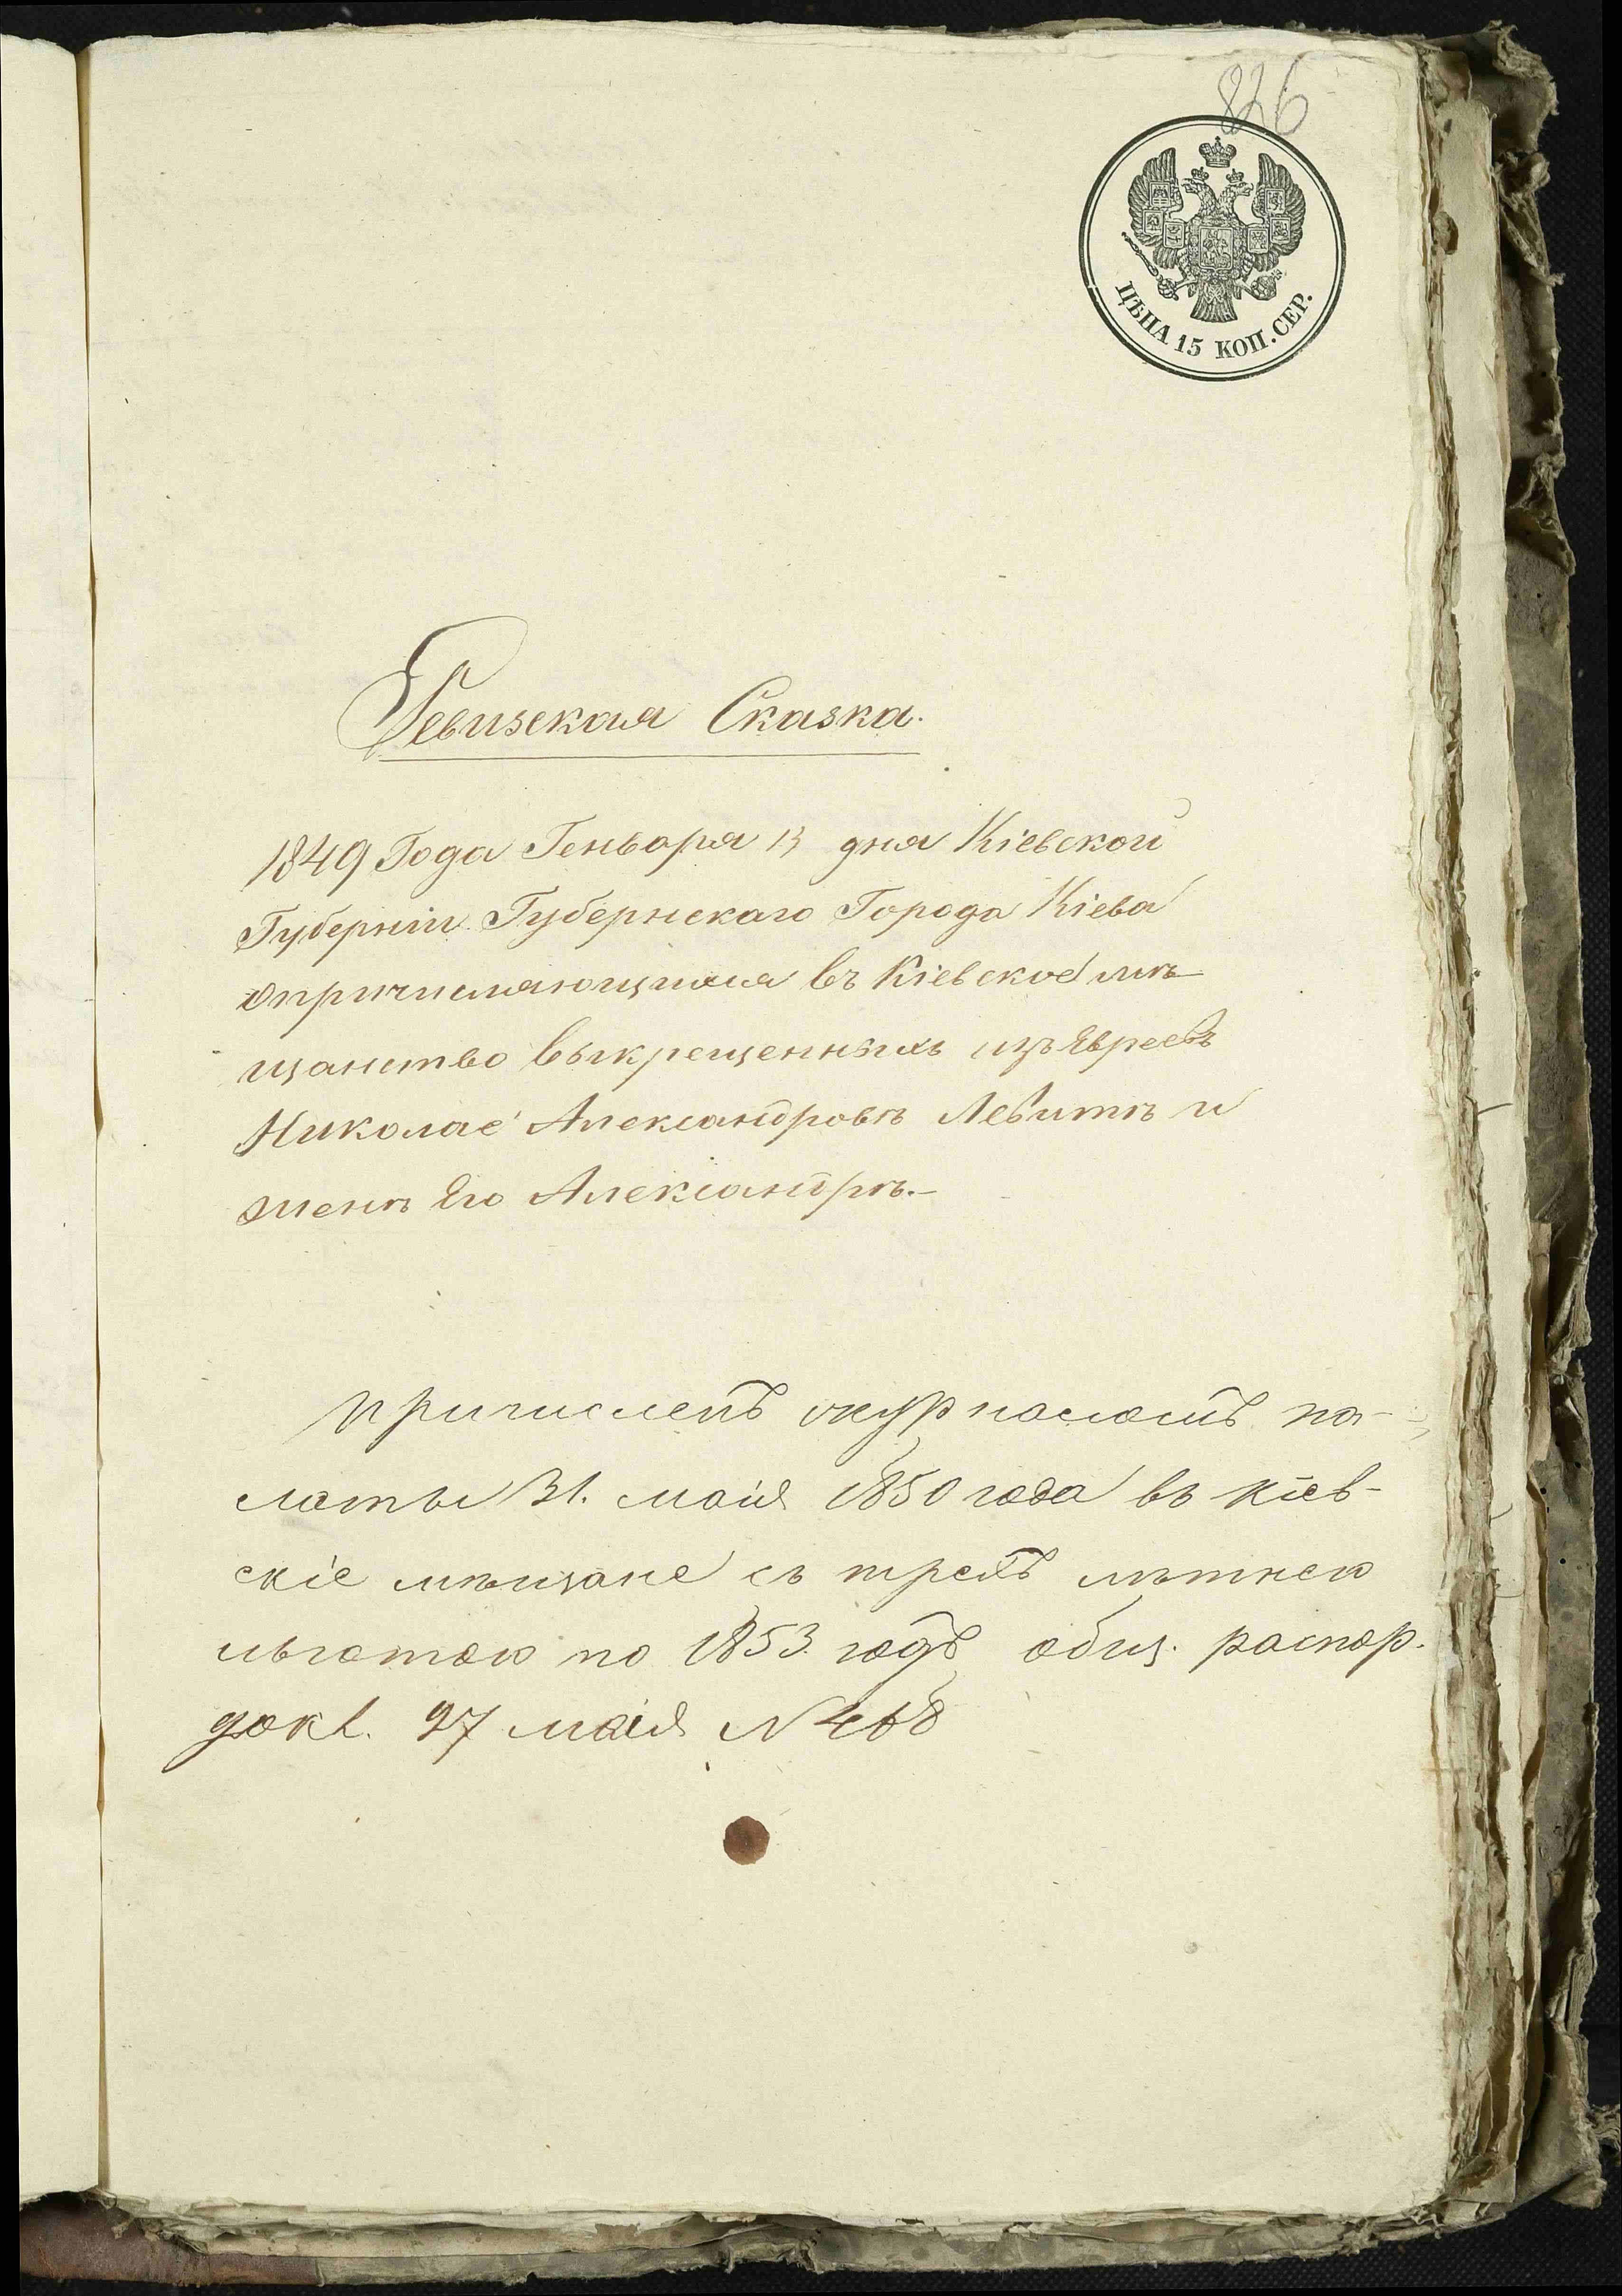 826
ЦѢНА 15 КОП. СЕР.
Ревизская Сказка.
1849 Года Геньваря 13 дня Кіевской
Губерніи Губернскаго Города Кіева
опричисляющихся въ Кіевское мѣ-
щанство выкрещенныхъ изъ Евреевъ
Николаѣ Александровѣ Левитѣ и
женѣ Его Александрѣ.-
Причисленъ журналомъ па-
латы 31. маія 1850 года въ Кіев-
скіе мѣщане съ трехъ лѣтнею
льготою по 1853 годъ общ. распор.
докл. 27 маія N 468